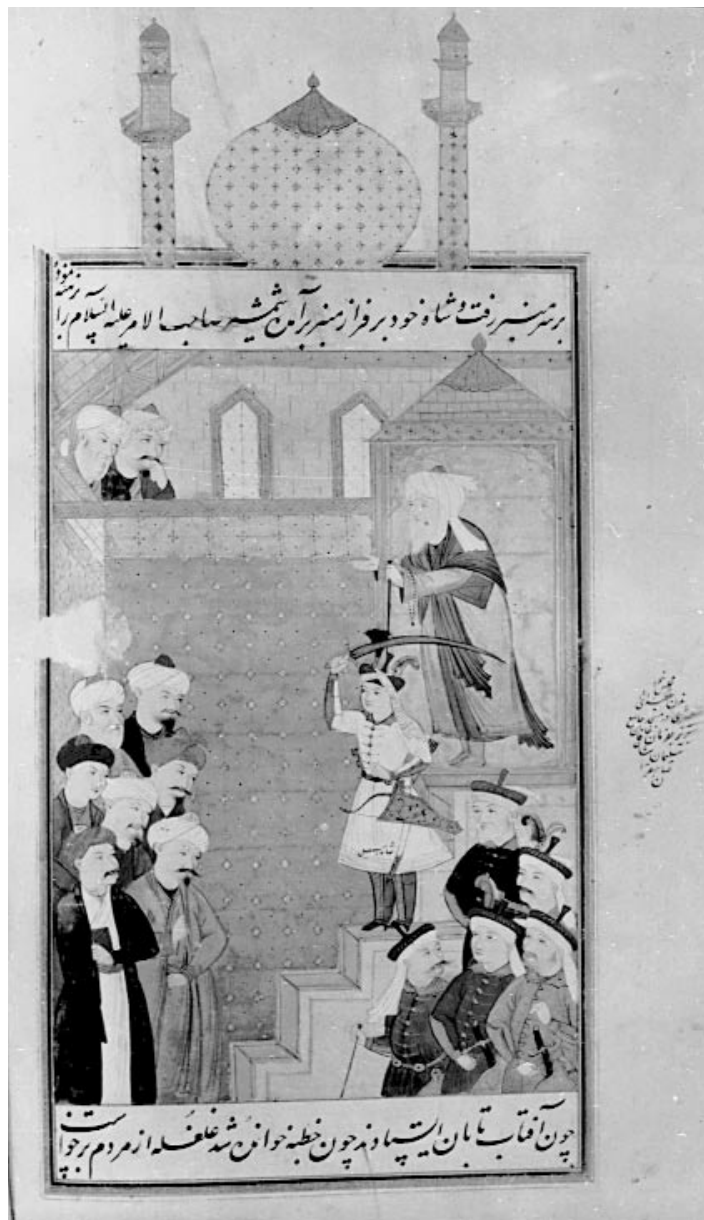 بر سر منبر رفت و شاه خود بر فراز منبر برآمده شمشیر صاحب الامر علیه السلام را برهنه نموده
شاه اسمعیل
چون آفتاب تابان ایستادند چون خطبه خوانده شد غلغله از مردم برخواست